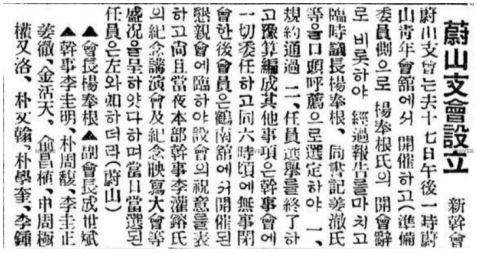 蔚山支會設立
新幹會
蔚山支會는去十七日午後一時蔚
山靑年會舘에서開催하고(準備
委員側으로楊奉根氏의開會辭
로비롯하야經過報告를마치고
臨時議長楊奉根、同書記姜澈氏
等을口頭呼薦으로選定하야一、
規約通過二、任員選擧를終了하
고豫算編成其他事項은幹事會에
一切委任하고同六時頃에無事閉
會한後會員은鶴南舘에서開催된
懇親會에臨하야設會의祝意를表
하고尙且當夜本部幹事李灌鎔氏
의紀念講演會及紀念映寫大會等
盛况을呈하얏다하며當日當選된
任員은左와如하더라(蔚山)
▲會長楊奉根▲副會長成世斌
▲幹事李圭明、朴周馥、李圭正
姜澈、金活天、兪昌植、申周極
權又洛、朴又翰、朴學奎、李鍾